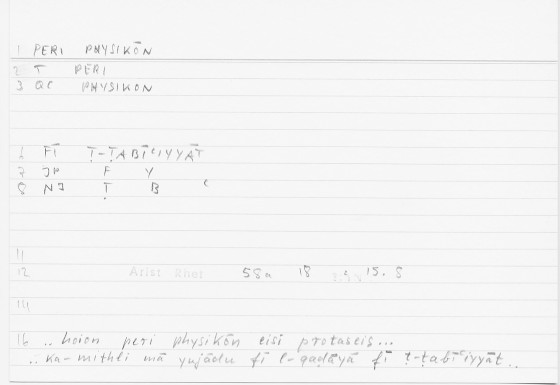 1 PERI PHYSIKŌN
2 T PERI
3 QC PHYSIKON
6 FĪ Ṭ-ṬABĪʿIYYĀT
7 JP F Y
8 NJ Ṭ B ʿ
11
12 Arist Rhet 58a 18 15.8
14
16 ..hoion peri physikōn eisi protaseis...
..ka-mithli mā yujādu fī l-qaḍāyā fī ṭ-ṭabīʿiyyāt..